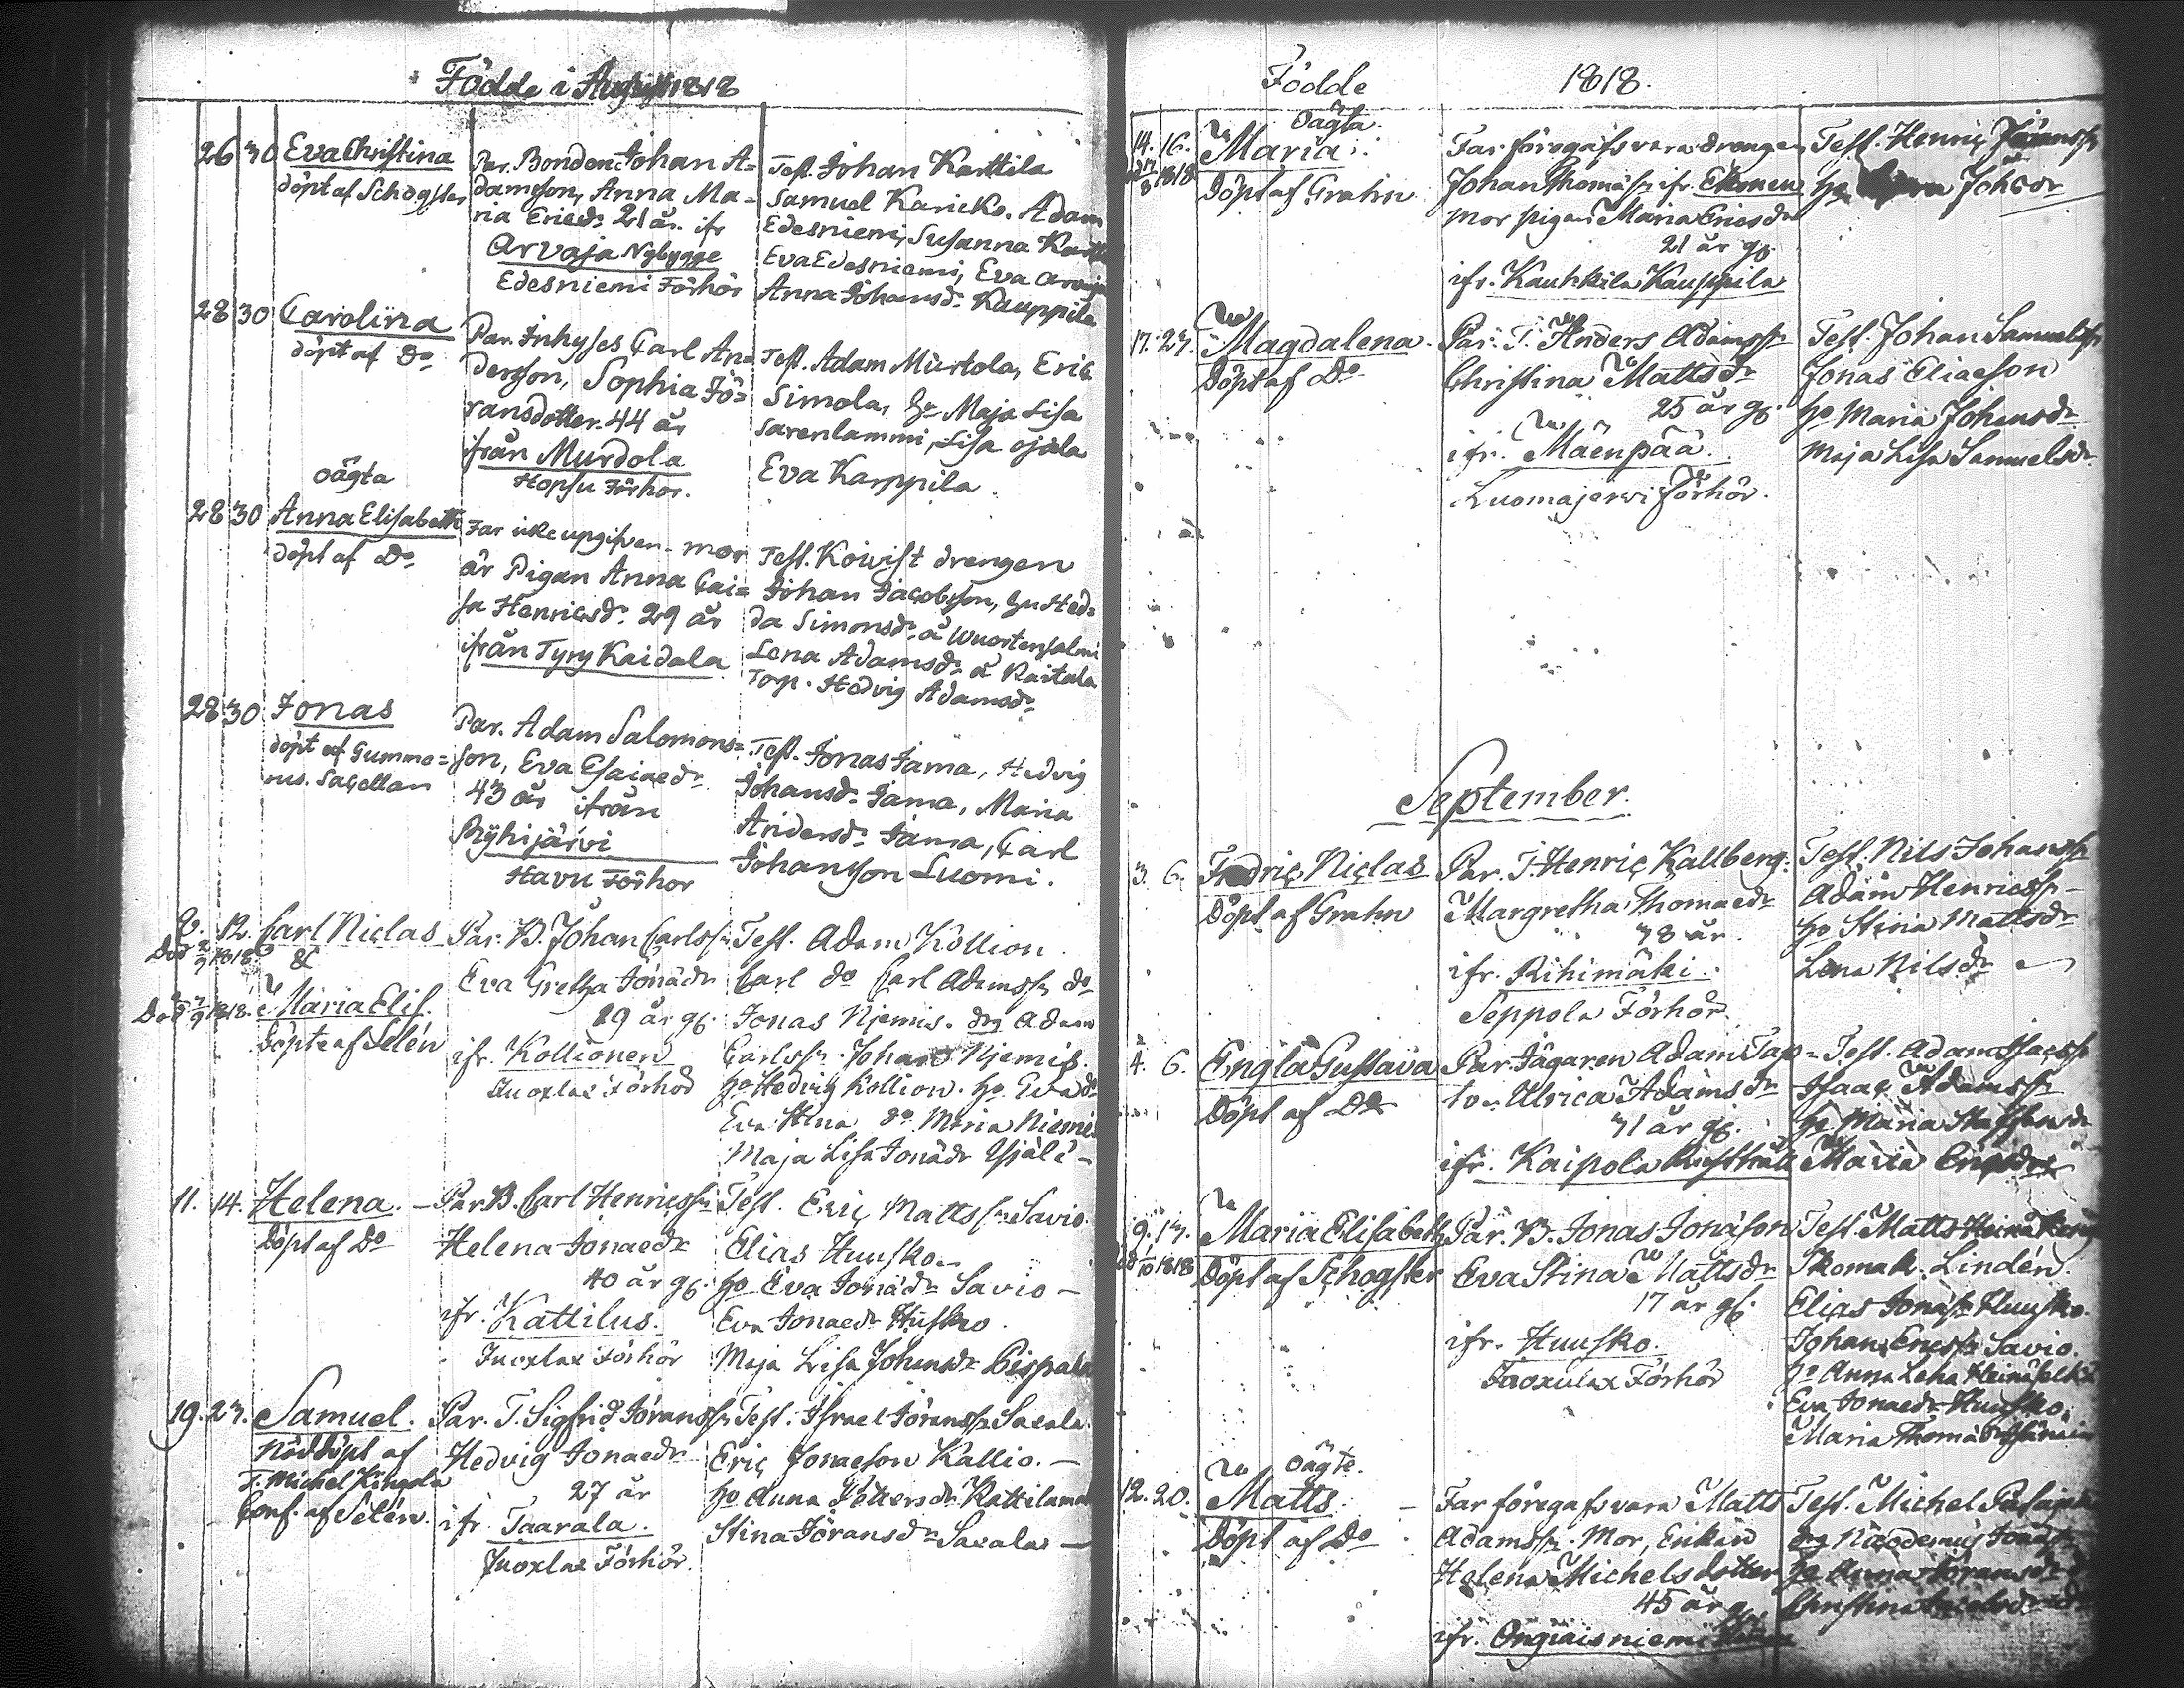 Födde i Augusti 1818
26 30 Eva Christina
döpt af Schogster
Par. Bonden Johan A=
damsson, Anna Ma=
ria Ericsdr 21 år. ifr
Arvaja Nybygge
Edesniemi Förhör
Test. Johan Karttila
Samuel Karicko. Adam
Edesniemi, Susanna
Eva Edesniemi, Eva
Anna Johansdr Kauppila
28 30 Carolina
döpt af Do
Par. Inhyses Carl An=
dersson, Sophia Jö=
ransdotter. 44 år
ifrån Murdola
Hopsu Förhör.
Test. Adam Murtola, Eric
Simola, hu Maja Lisa
Sarenlammi, Lisa Ojala
Eva Karppila.
oägta
28 30 Anna Elisabeth
döpt af Do
Far icke upgifven. mor
är Pigan Anna Cai=
sa Henricsdr. 29 år
ifrån Tyry Kaidala
Test. Koivist drengen
Johan Jacobsson, hu Hed=
da Simonsdr å Wuortensalmi
Lena Adamsdr å Raitala
Torp. Hedvig Adamsdr
28 30 Jonas
döpt af Gumme=
rus. Sacellan
Par. Adam Salomons=
son, Eva Esaiaedr
43 år ifrån
Ryhijärvi
Havu Förhör
Test. Jonas Jama, Hedvig
Johansdr Jama, Maria
Andersdr Jama, Carl
Johansson Luomi.
8. 12. Carl Niclas
&
Maria Elis.
Döpte af Selén
Par. B. Johan Carlss.
Eva Gretha Jonaedr
29 år g.
ifr. Kollionen
Juoxlax Förhör
Test. Adam Kollion
Carl do Carl Adamss. do
Jonas Njemis. drg Adam
Carlss. Johan Njemis.
ho Hedvig Kollion. ho Eva do
Eva Stina do Maria
Maja Lisa Jonaedr
11. 14. Helena.
Döpt af Do
Par B. Carl Henricss.
Helena Jonaedr
40 år g.
ifr. Kattilus.
Juoxlax Förhör
Test. Eric Mattss. Savio.
Elias Huusko
ho Eva Jonaedr Savio
Eva Jonaedr Husko.
Maja Lisa Johansdr Pispala
19. 23. Samuel.
Nöddöpt af
T. Michel Kingola
Conf. af Selén.
Par. T. Sigfrid Jöranss.
Hedvig Jonaedr
27 år
ifr. Taarala.
Juoxlax Förhör.
Test. Israel Jöranss. Saxala.
Eric Jonaeson Kallio.
ho Anna Pettersdr
Stina Jöransdr Saxala
Födde 1818.
oägta
14. 16. Maria
Döpt af Grahn
Far föregafs vara drengen
Johan Thomass. ifr. Ekonen
mor pigan Maria Ericsdr
21 år g.
ifr. Kauhkila Kauppila
Test. Henric Jöranss.
17. 23. Magdalena.
Döpt af Do
Par. T. Anders Adamss.
Christina Mattsdr
25 år g.
ifr. Mäenpää.
Luomajerwi Förhör.
Test. Johan Samuelss.
Jonas Eliaeson
ho Maria Johansdr
Maja Lisa Samuelsdr.
September.
3. 6. Fredric Niclas
Döpt af Grahn
Par. T. Henric Kallberg.
Margretha Thomaedr
38 år.
ifr. Rihimäki.
Seppola Förhör
Test. Nils Johanss.
Adam Henricss.
ho Stina Mattsdr
Lena Nilsdr
4. 6. Engla Gustava
Döpt af Do
Par. Jägaren Adam Tap=
Ulrica Adamsdr
31 år g.
ifr. Kaipola
Test. Adam Isacss.
Isaac Adamss.
ho Maria Staffansdr
Maria Ericsdr
9. 13. Maria Elisabeth
Döpt af Schogster
Par. B. Jonas Jonason
Eva Stina Mattsdr
17 år g.
ifr. Huusko.
Juoxulax Förhör
Test. Matts
Skomak. Lindén.
Elias Jonass. Huusko.
Johan Ericss. Savio.
ho Anna Lena
Eva Jonaedr Huusko.
Maria
oägte.
12. 20. Matts.
Döpt af Do
Far föregafs vara Matts
Adamss. Mor, Enkan
Helena Michelsdotter
45 år g.
ifr. Ongiaisniemi
Test. Michel